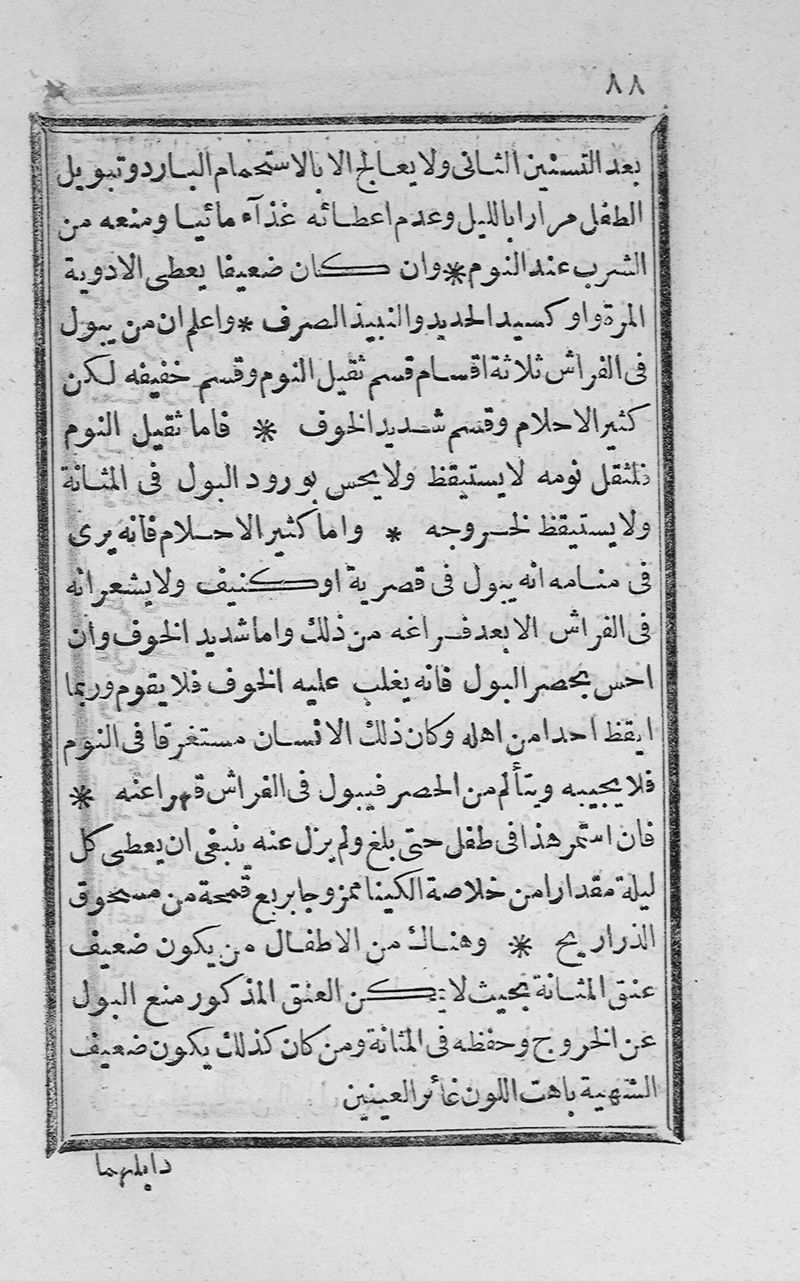 ٨٨
بعد التسنين الثانى ولا يعالج الا بالاستحمام البارد وتبويل
الطفل مرارا بالليل وعدم اعطائه غذآء مائيا ومنعه من
الشرب عند النوم * وان كان ضعيفا يعطى الادوية
المرة واوكسيد الحديد والنبيذ الصرف * واعلم ان من يبول
فى الفراش ثلاثة اقسام قسم ثقيل النوم وقسم خفيفه لكن
كثير الاحلام وقسم شديد الخوف * فاما ثقيل النوم
فلثقل نومه لا يستيقظ ولا يحس بورود البول فى المثانة
ولا يستيقظ لخروجه * واما كثير الاحلام فانه يرى
فى منامه انه يبول فى قصرية او كنيف ولا يشعر انه
فى الفراش الا بعد فراغه من ذلك واما شديد الخوف وان
احس بحصر البول فانه يغلب عليه الخوف فلا يقوم وربما
ايقظ احدا من اهله وكان ذلك الانسان مستغرقا فى النوم
فلا يجيبه ويتألم من الحصر فيبول فى الفراش قهرا عنه *
فان استمر هذا فى طفل حتى بلغ ولم يزل عنه ينبغى ان يعطى كل
ليلة مقدارا من خلاصة الكينا ممزوجا بربع قمحة من مسحوق
الذراريح * وهناك من الاطفال من يكون ضعيف
عنق المثانة بحيث لا يمكن العنق المذكور منع البول
عن الخروج وحفظه فى المثانة ومن كان كذلك يكون ضعيف
الشهية باهت اللون غائر العينين
ذابلهما